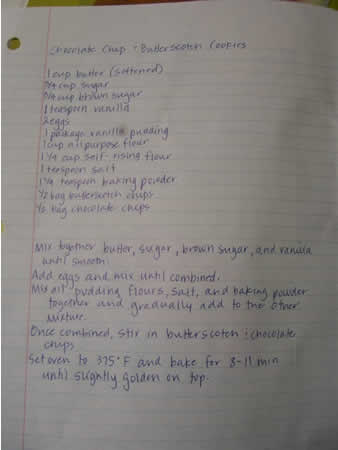 Chocolate Chip & Butterscotch Cookies
1 cup butter (softened)
3/4 cup sugar
3/4 cup brown sugar
1 teaspoon vanilla
2 eggs
1 package vanilla pudding
1 cup all purpose flour
1 1/4 cup self-rising flour
1 teaspoon salt
1 1/4 teaspoon baking powder
1/2 bag butterscotch chips
1/2 bag chocolate chips
Mix together butter, sugar, brown sugar, and vanilla
until smooth.
Add eggs and mix until combined.
Mix all pudding flours, salt, and baking powder
together and gradually add to the other
mixture.
Once combined, stir in butterscotch & chocolate
chips
Set oven to 375°F and bake for 8-11 min
until slightly golden on top.